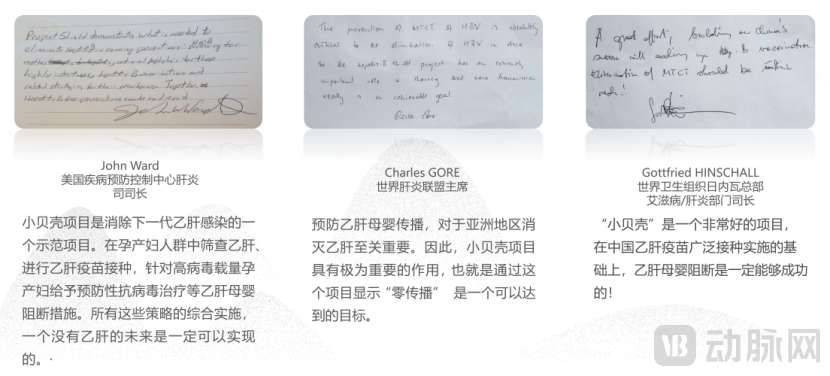 Project Shield demonstrates what is needed to
eliminate
mothers
highly
Together
The prevention of MTCT of HBV is absolutely
critical to the elimination of HBV in Asia
so the project has an extremely
important role in showing that zero transmission
really is an achievable goal.
Charles Gore
A great effort, building on China's
success with scaling up Hep. B vaccination
Elimination of MTCT should be within
reach!
John Ward
美国疾病预防控制中心肝炎
司司长
小贝壳项目是消除下一代乙肝感染的一
个示范项目。在孕产妇人群中筛查乙肝、
进行乙肝疫苗接种，针对高病毒载量孕
产妇给予预防性抗病毒治疗等乙肝母婴
阻断措施。所有这些策略的综合实施，
一个没有乙肝的未来是一定可以实现
的。·
Charles GORE
世界肝炎联盟主席
预防乙肝母婴传播，对于亚洲地区消
灭乙肝至关重要。因此，小贝壳项目
具有极为重要的作用，也就是通过这
个项目显示“零传播” 是一个可以达
到的目标。
Gottfried HINSCHALL
世界卫生组织日内瓦总部
艾滋病/肝炎部门司长
“小贝壳”是一个非常好的项目，
在中国乙肝疫苗广泛接种实施的基
础上，乙肝母婴阻断是一定能够成功
的！
VB 动脉网